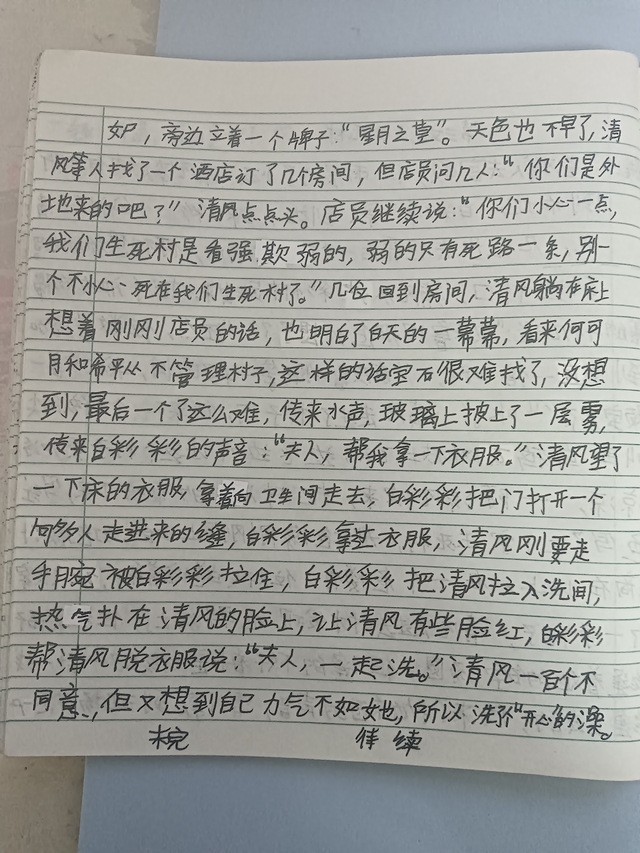 如尸，旁边立着一个牌子：“星月之堂”。天色也不早了，清
风等人找了一个酒店订了几个房间，但店员问几人：“你们是外
地来的吧？”清风点点头。店员继续说：“你们小心一点，
我们生死村是看强欺弱的，弱的只有死路一条，别一
个不小心死在我们生死村了。”几位回到房间，清风躺在床上
想着刚刚店员的话，也明白了白天的一幕幕，看来何可
月和希平从不管理村子，这样的话宝石很难找了，没想
到，最后一个了这么难，传来水声，玻璃上披上了一层雾，
传来白彩彩的声音：“夫人，帮我拿一下衣服。”清风望了
一下床的衣服，拿着向卫生间走去，白彩彩把门打开一个
何多人走进来的缝，白彩彩拿过衣服，清风刚要走
手腕被白彩彩拉住，白彩彩把清风拉入洗间，
热气扑在清风的脸上，让清风有些脸红，白彩彩
帮清风脱衣服说：“夫人，一起洗。”清风一百个不
同意，但又想到自己力气不如她，所以洗了个“开心”的澡。
椀 伴 缠